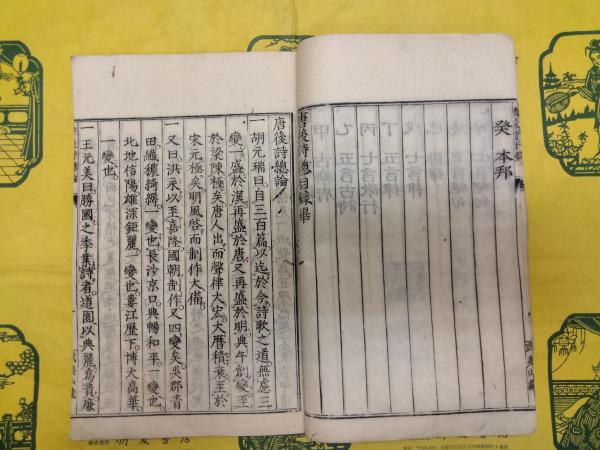 癸 本邦
唐後詩總目録畢
唐後詩總論
一胡元瑞曰自三百篇以迄於今詩歌之道無慮三
變一盛於漢再盛於唐又再盛於明典午創變至
於梁陳極矣唐人出而聲律大宏大曆積衰至於
宋元極矣明風啓而制作大備
一又曰洪永以至嘉隆國朝制作又四變矣吳郡青
田纖穠綺縟一變也長沙京口典暢和平一變也
北地信陽雄深鉅麗一變也婁江歷下博大高華
一變也
一王元美曰勝國之季業詩者道園以典麗爲貴廉